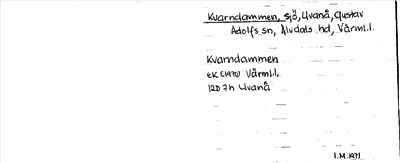 Kvarndammen, sjö, Uvanå, Gustav
Adolfs sn, Älvdals hd, Värml.l.
Kvarndammen
EK (1970) Värml.l.
12D 7h Uvanå
I.M. 1971